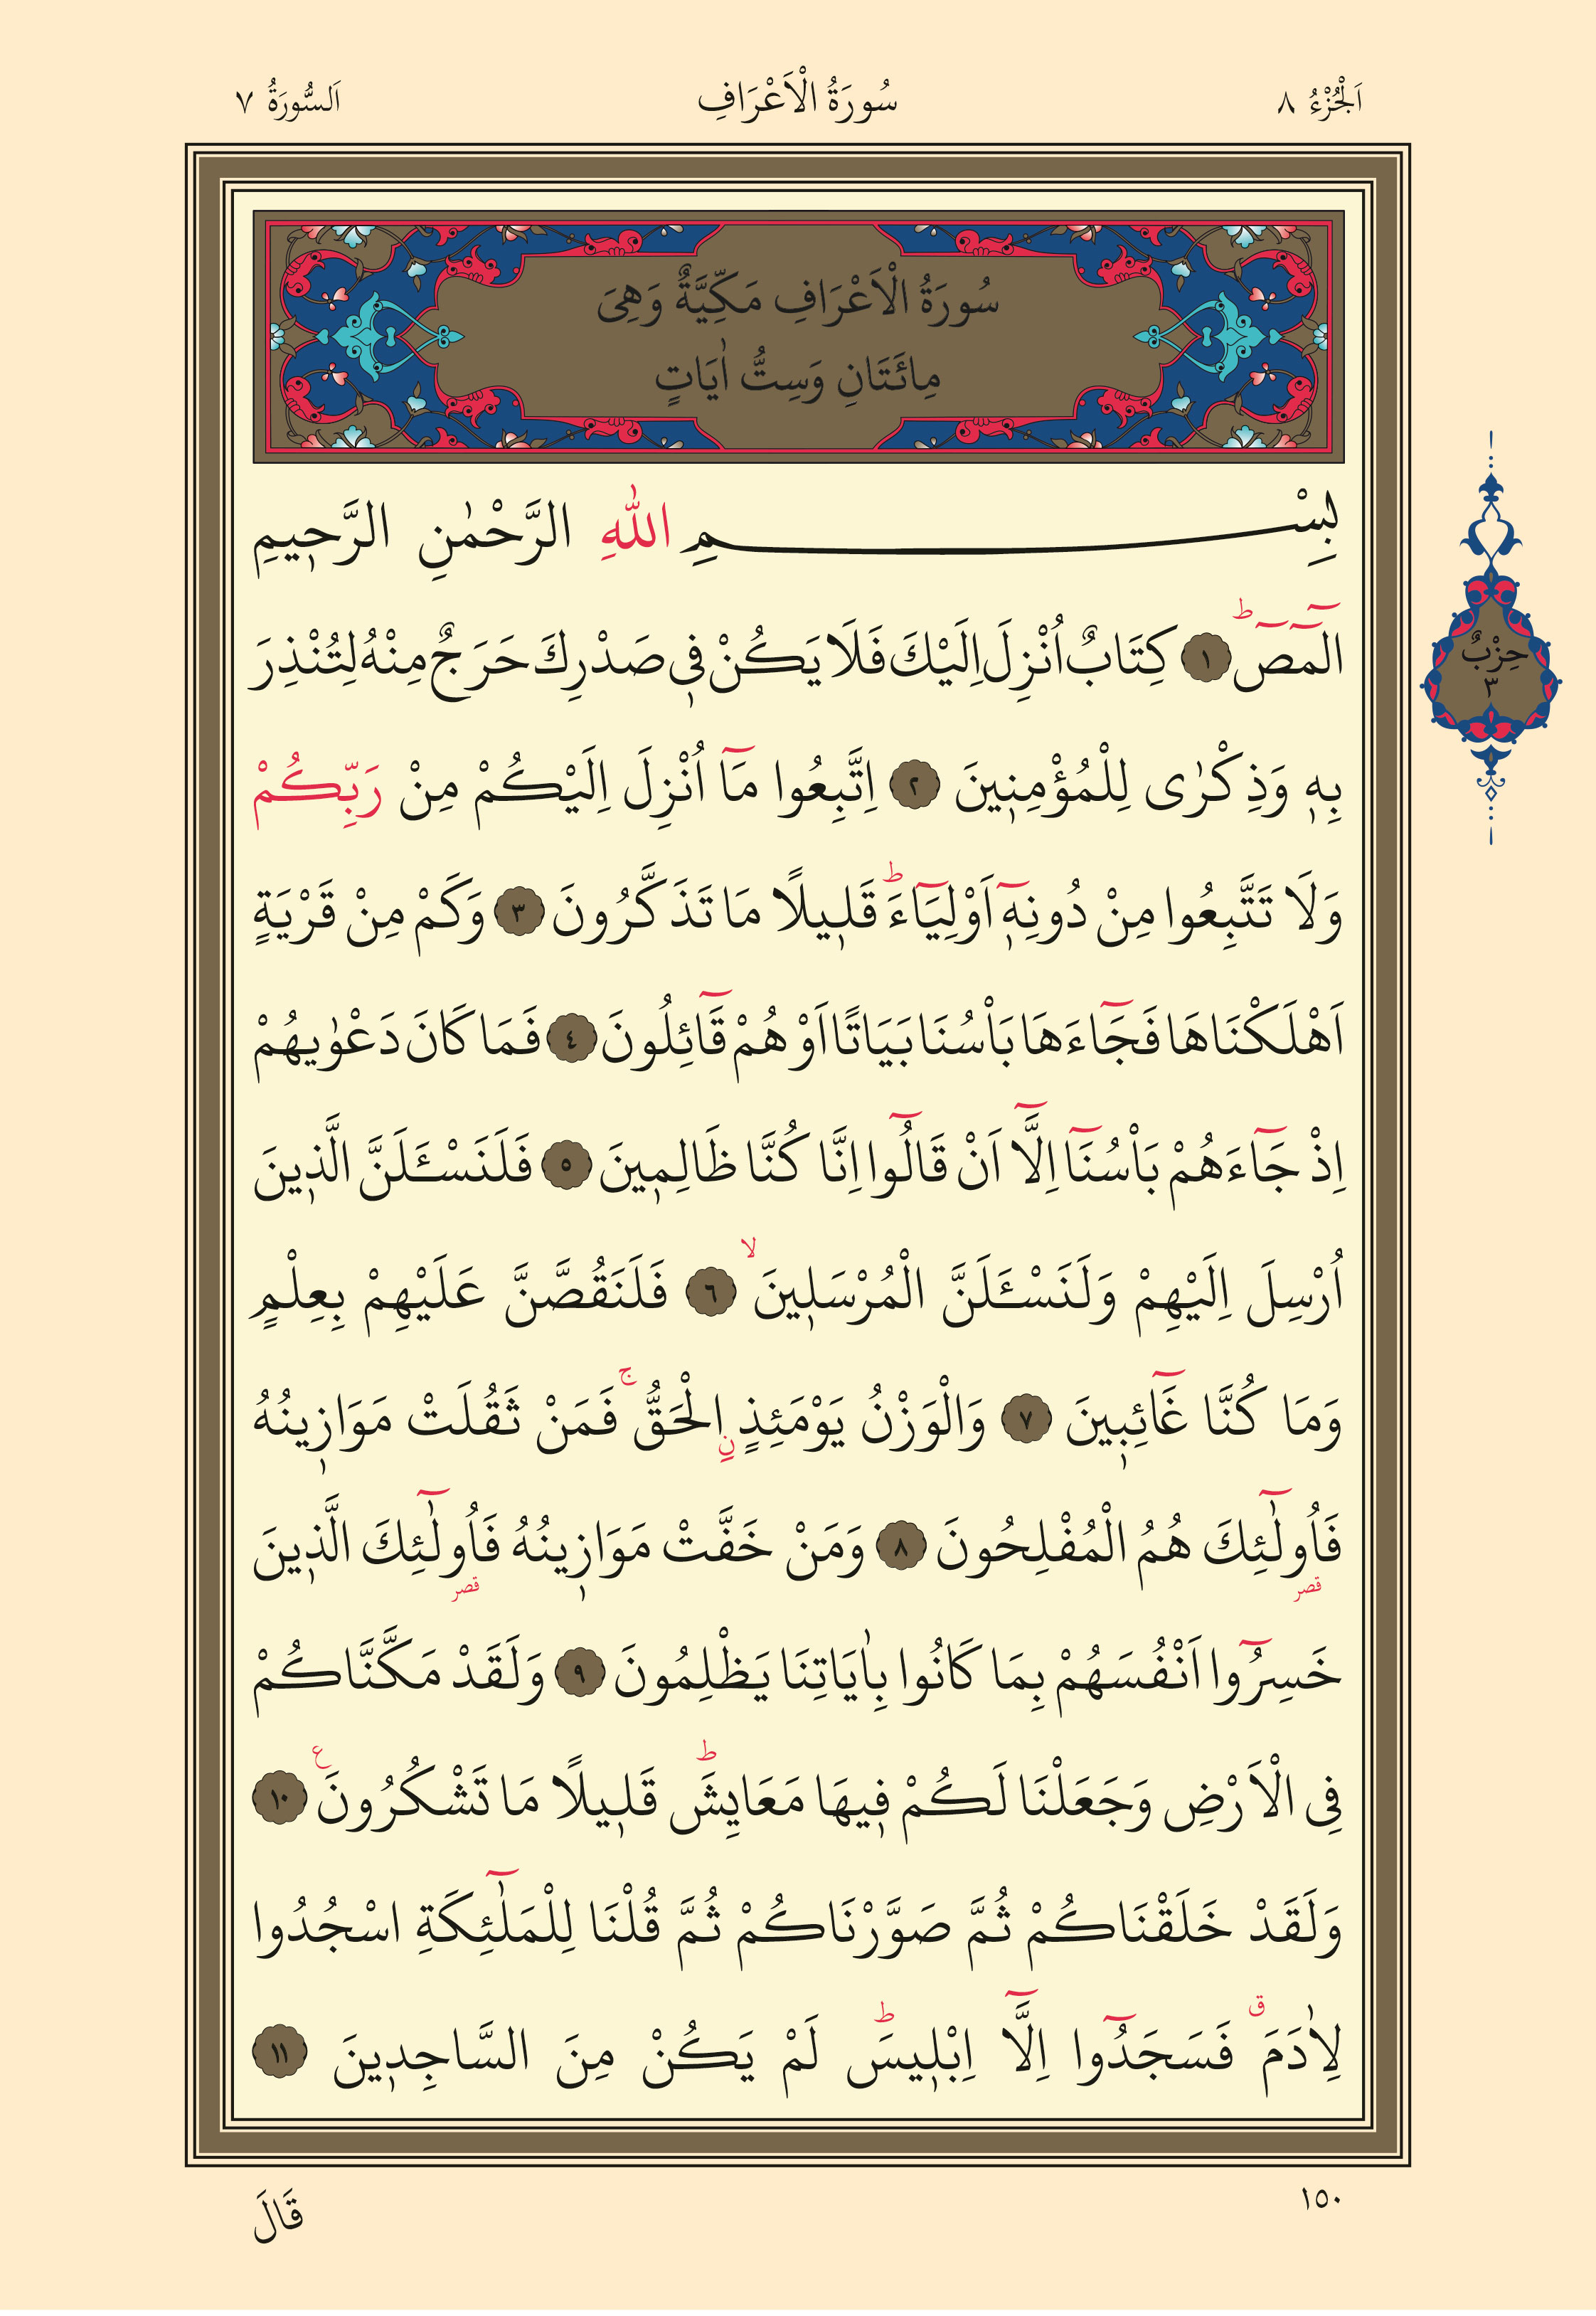 اَلْجُزْءُ ٨
سُورَةُ الْاَعْرَافِ
اَلسُّورَةُ ٧
سُورَةُ الْاَعْرَافِ مَكِّيَّةٌ وَهِىَ
مِائَتَانِ وَسِتُّ اٰيَاتٍ
بِسْمِ اللّٰهِ الرَّحْمٰنِ الرَّحٖيمِ
الٓمٓصٓ ۜ ١ كِتَابٌ اُنْزِلَ اِلَيْكَ فَلَا يَكُنْ فٖى صَدْرِكَ حَرَجٌ مِنْهُ لِتُنْذِرَ
بِهٖ وَذِكْرٰى لِلْمُؤْمِنٖينَ ٢ اِتَّبِعُوا مَٓا اُنْزِلَ اِلَيْكُمْ مِنْ رَبِّكُمْ
وَلَا تَتَّبِعُوا مِنْ دُونِهٖٓ اَوْلِيَٓاءَ ط قَلٖيلًا مَا تَذَكَّرُونَ ٣ وَكَمْ مِنْ قَرْيَةٍ
اَهْلَكْنَاهَا فَجَٓاءَهَا بَاْسُنَا بَيَاتًا اَوْ هُمْ قَٓائِلُونَ ٤ فَمَا كَانَ دَعْوٰيهُمْ
اِذْ جَٓاءَهُمْ بَاْسُنَٓا اِلَّٓا اَنْ قَالُٓوا اِنَّا كُنَّا ظَالِمٖينَ ٥ فَلَنَسْـَٔلَنَّ الَّذٖينَ
اُرْسِلَ اِلَيْهِمْ وَلَنَسْـَٔلَنَّ الْمُرْسَلٖينَ لا ٦ فَلَنَقُصَّنَّ عَلَيْهِمْ بِعِلْمٍ
وَمَا كُنَّا غَٓائِبٖينَ ٧ وَالْوَزْنُ يَوْمَئِذٍ نِ الْحَقُّ ج فَمَنْ ثَقُلَتْ مَوَازٖينُهُ
فَاُولٰٓئِكَ هُمُ الْمُفْلِحُونَ ٨ وَمَنْ خَفَّتْ مَوَازٖينُهُ فَاُولٰٓئِكَ الَّذٖينَ
قصر قصر
خَسِرُٓوا اَنْفُسَهُمْ بِمَا كَانُوا بِاٰيَاتِنَا يَظْلِمُونَ ٩ وَلَقَدْ مَكَّنَّاكُمْ
فِى الْاَرْضِ وَجَعَلْنَا لَكُمْ فٖيهَا مَعَايِشَ ط قَلٖيلًا مَا تَشْكُرُونَ ع ١٠
وَلَقَدْ خَلَقْنَاكُمْ ثُمَّ صَوَّرْنَاكُمْ ثُمَّ قُلْنَا لِلْمَلٰٓئِكَةِ اسْجُدُوا
لِاٰدَمَ ق فَسَجَدُٓوا اِلَّٓا اِبْلٖيسَ ط لَمْ يَكُنْ مِنَ السَّاجِدٖينَ ١١
حِزْبٌ
٣
١٥٠
قَالَ